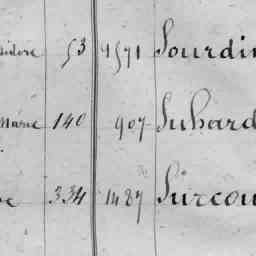 idore 53 1571 Sourdin
Marie 140 907 Suhard
334 1487 Surcou